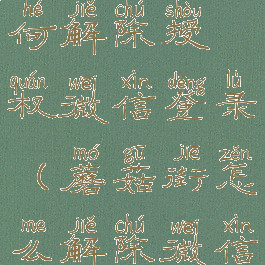 hé jiě chú shòu
何解除授
quán wēi xìn dēng lù
权微信登录
mó gū jiē zěn
（蘑菇街怎
me jiě chú wēi xìn
么解除微信